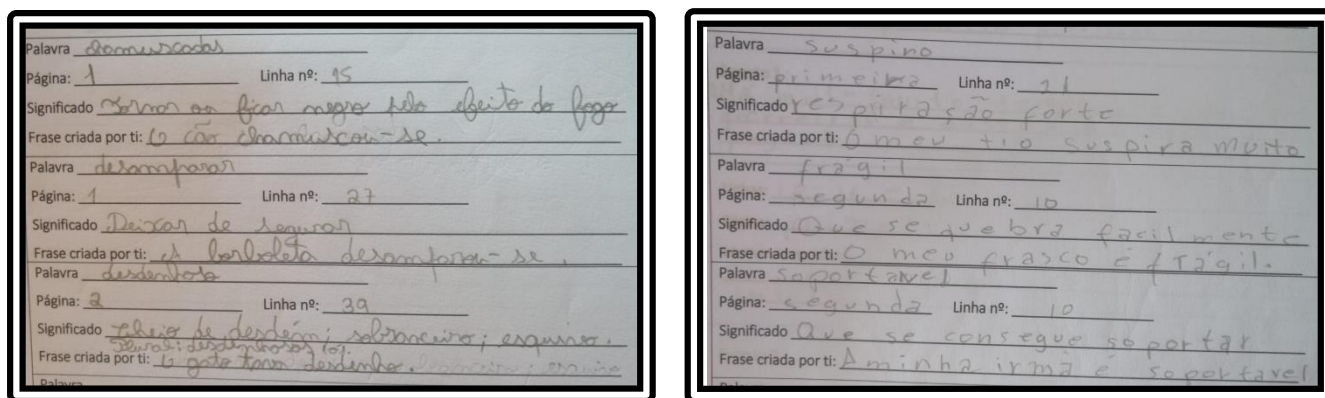 Palavra chamuscadas
Página: 1 Linha nº: 15
Significado Tornar ou ficar negro pelo efeito do fogo
Frase criada por ti: O cão chamuscou-se.
Palavra desamparar
Página: 1 Linha nº: 27
Significado Deixar de segurar
Frase criada por ti: A borboleta desamparou-se.
Palavra desdenhosa
Página: 2 Linha nº: 39
Significado Cheio de desdém; sobranceiro; esquivo.
Plural: desdenhosos
Frase criada por ti: O gato desdenho.
Palavra
Palavra suspiro
Página: primeira Linha nº:
Significado respiração forte
Frase criada por ti: O meu tio suspira muito
Palavra frágil
Página: segunda Linha nº: 10
Significado Que se quebra facilmente
Frase criada por ti: O meu frasco é frágil.
Palavra soportavel
Página: segunda Linha nº: 10
Significado Que se consegue soportar
Frase criada por ti: A minha irmã é soportavel